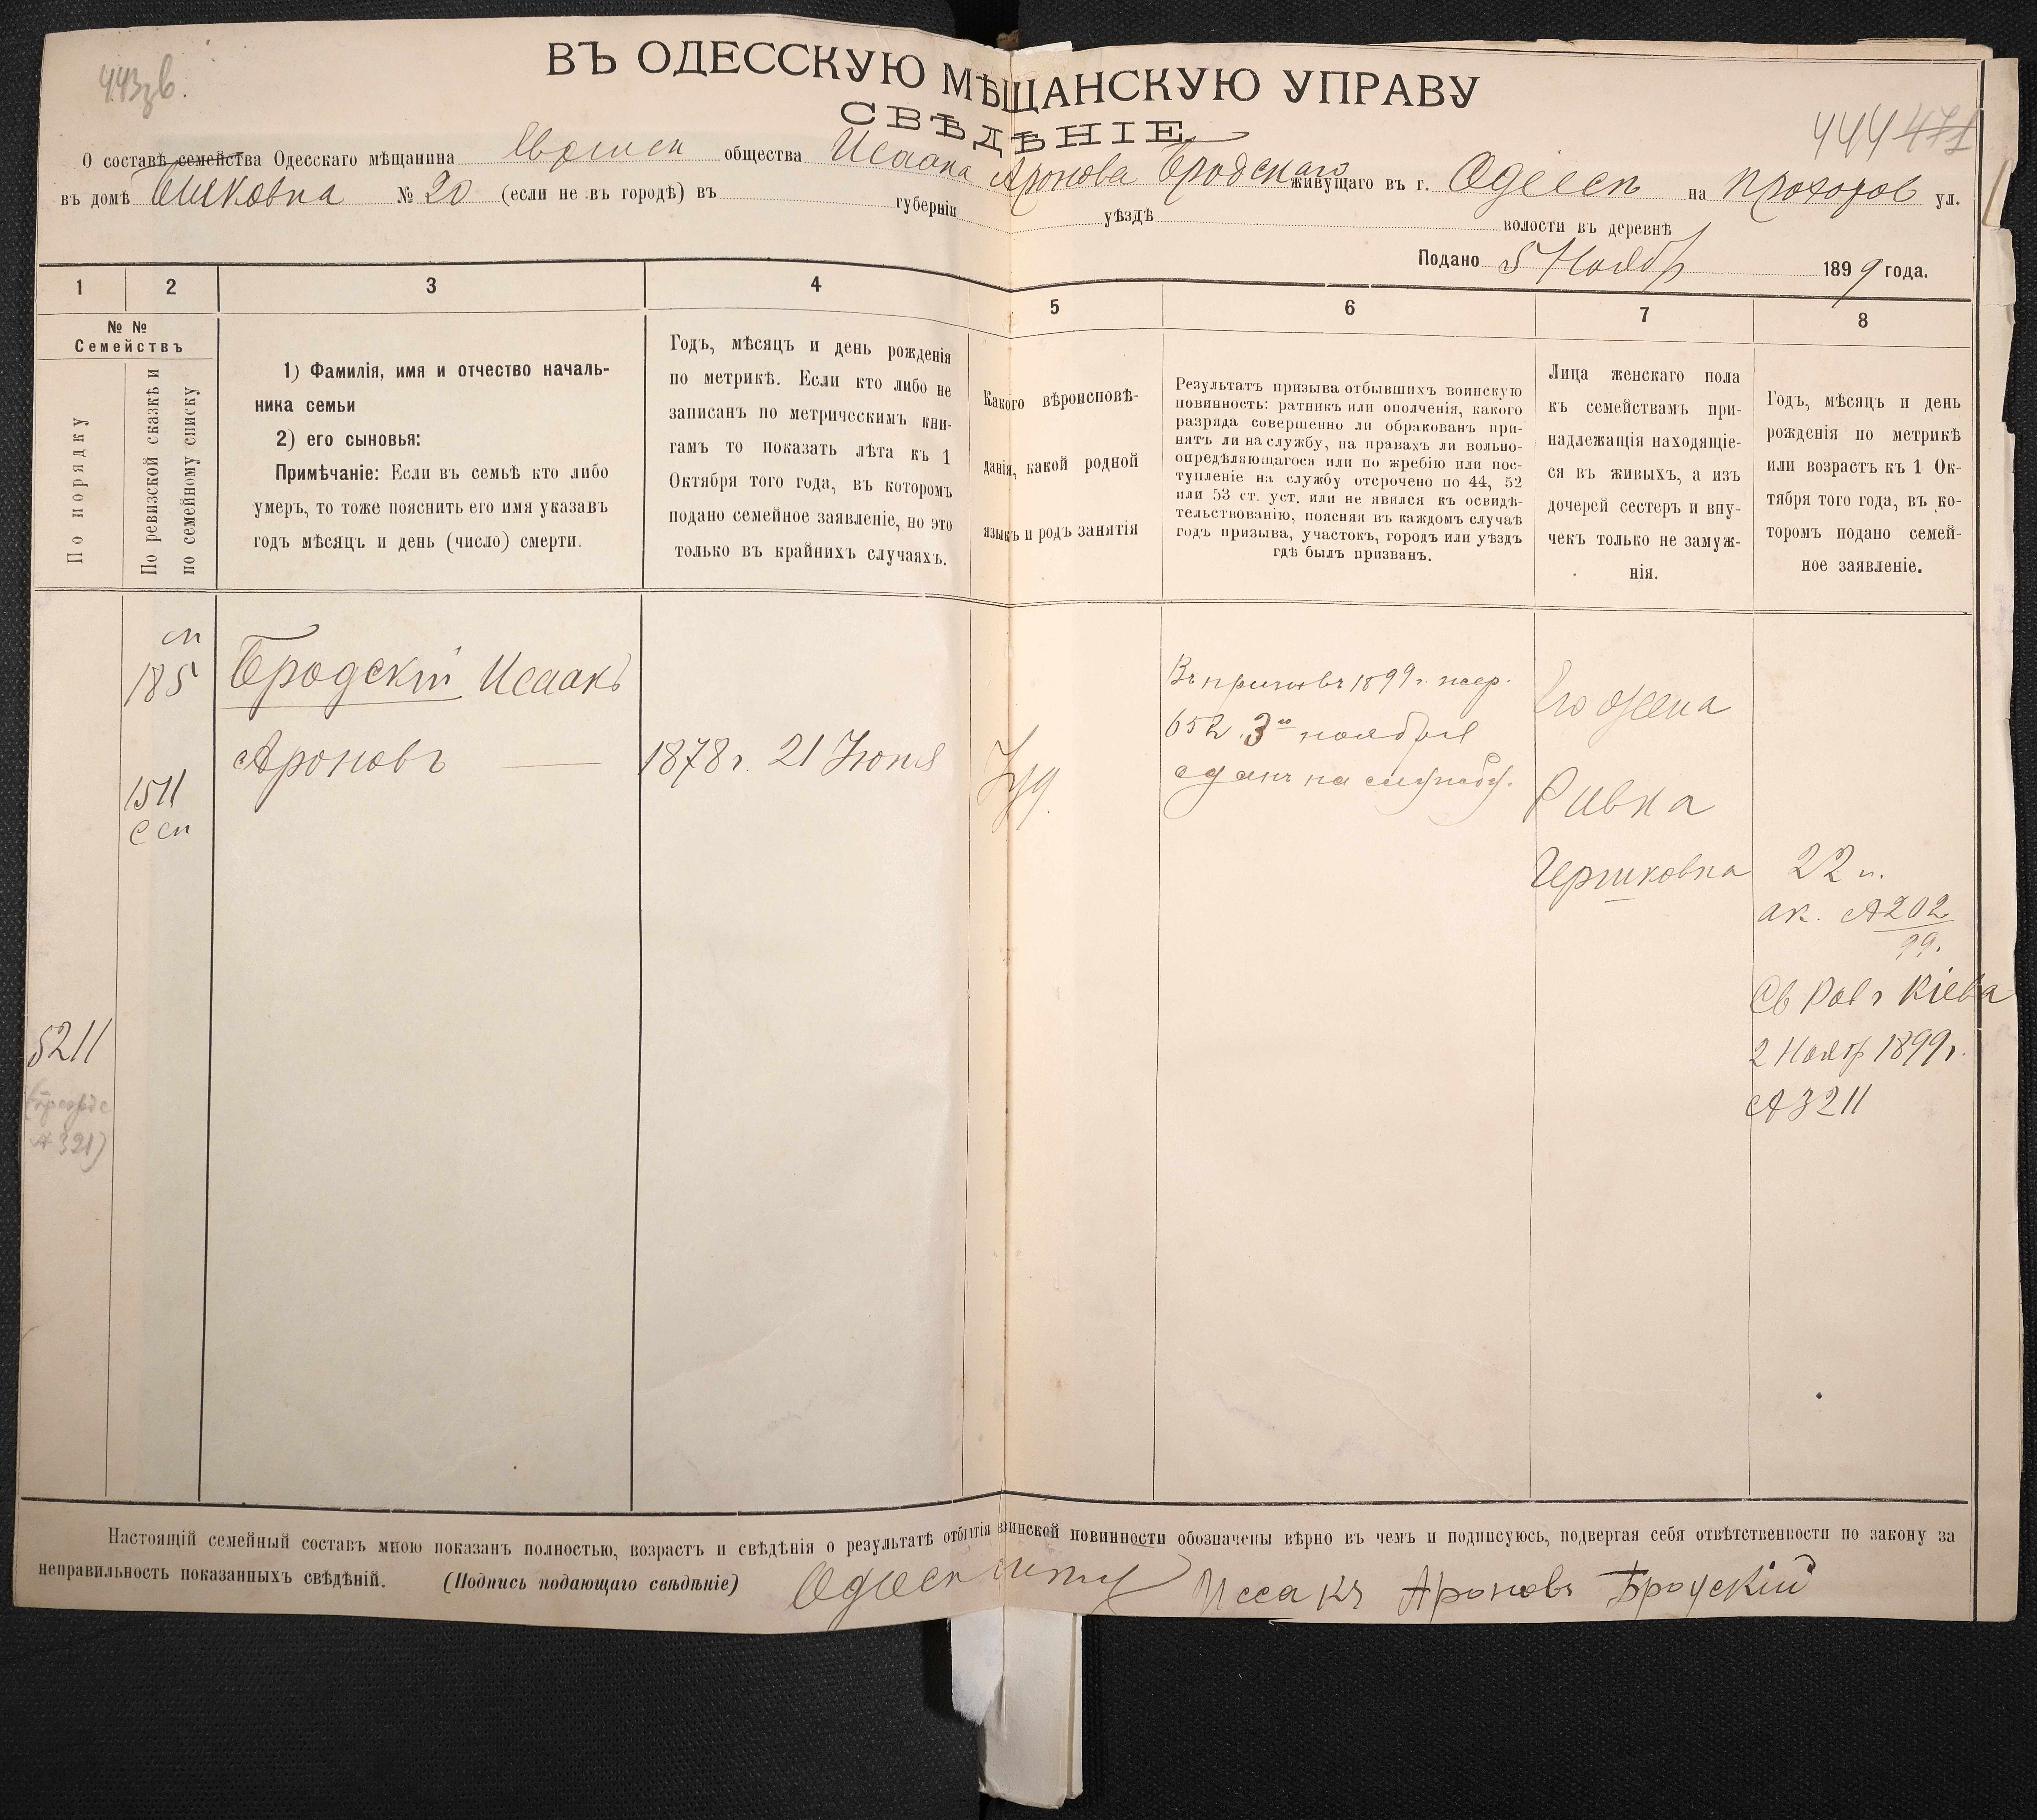 443зв.
ВЪ ОДЕССКУЮ МѢЩАНСКУЮ УПРАВУ
СВѢДѢНІЕ
444 471
О составѣ семейства Одесскаго мѣщанина общества Исаака Аронова Бродскаго живущаго въ г. Одессѣ на Прохоров ул.
въ домѣ № 20 (если не въ городѣ) въ губерніи уѣздѣ волости въ деревнѣ
Подано 5 Ноябр 1899 года.
1 2 3 4 5 6 7 8
№ №
Семействъ
По порядку
По ревизской сказкѣ и
по семейному списку
1) Фамилія, имя и отчество началь-
ника семьи
2) его сыновья:
Примѣчаніе: Если въ семьѣ кто либо
умеръ, то тоже пояснить его имя указавъ
годъ мѣсяцъ и день (число) смерти.
Годъ, мѣсяцъ и день рожденія
по метрикѣ. Если кто либо не
записанъ по метрическимъ кни-
гамъ то показать лѣта къ 1
Октября того года, въ которомъ
подано семейное заявленіе, но это
только въ крайнихъ случаяхъ.
Какого вѣроисповѣ-
данія, какой родной
языкъ и родъ занятія
Результатъ призыва отбывшихъ воинскую
повинность: ратникъ или ополченія, какого
разряда совершенно ли обракованъ при-
нятъ ли на службу, на правахъ ли вольно-
опредѣляющагося или по жребію или пос-
тупленіе на службу отсрочено по 44, 52
или 53 ст. уст. или не явился къ освидѣ-
тельствованію, поясняя въ каждомъ случаѣ
годъ призыва, участокъ, городъ или уѣздъ
гдѣ былъ призванъ.
Лица женскаго пола
къ семействамъ при-
надлежащія находящіе-
ся въ живыхъ, а изъ
дочерей сестеръ и вну-
чекъ только не замуж-
нія.
Годъ, мѣсяцъ и день
рожденія по метрикѣ
или возрастъ къ 1 Ок-
тября того года, въ ко-
торомъ подано семей-
ное заявленіе.
сп
185
1511
С сп
5211
Бродскій Исаакъ
Ароновъ
1878 г. 21 Іюня
Іуд.
Въ призывъ 1899 г. жер.
652. 3го ноября
сданъ на службу.
Его жена
Ривка
Гершковна
22 л.
ак. № 202
99.
Св Рав г Кіева
2 Ноябр 1899 г.
№ 3211
Настоящій семейный составъ мною показанъ полностью, возрастъ и свѣдѣнія о результатѣ отбытія воинской повинности обозначены вѣрно въ чемъ и подписуюсь, подвергая себя отвѣтственности по закону за
неправильность показанныхъ свѣдѣній. (Подпись подающаго свѣдѣніе) Иссакъ Ароновъ Бродскій